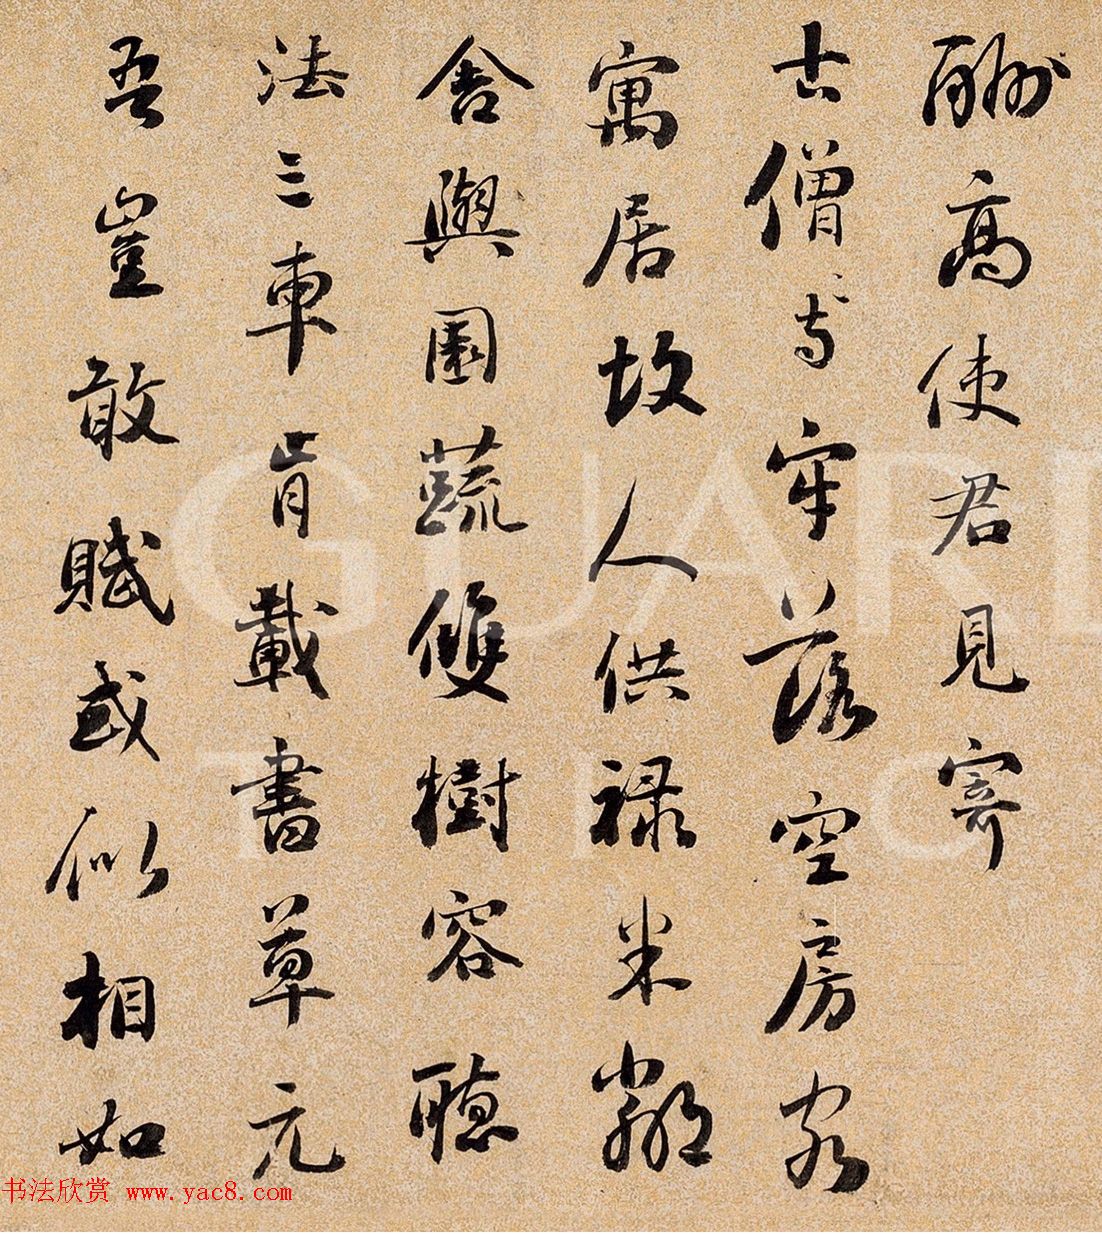 酬高使君見寄
古僧寺牢落空房客
寓居故人供禄米鄰
舍與園蔬雙樹容聽
法三車肯載書草元
吾豈敢賦或似相如
书法欣赏 www.yac8.com